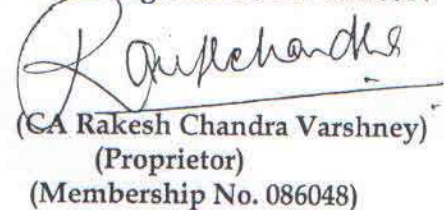 (CA Rakesh Chandra Varshney)
(Proprietor)
(Membership No. 086048)